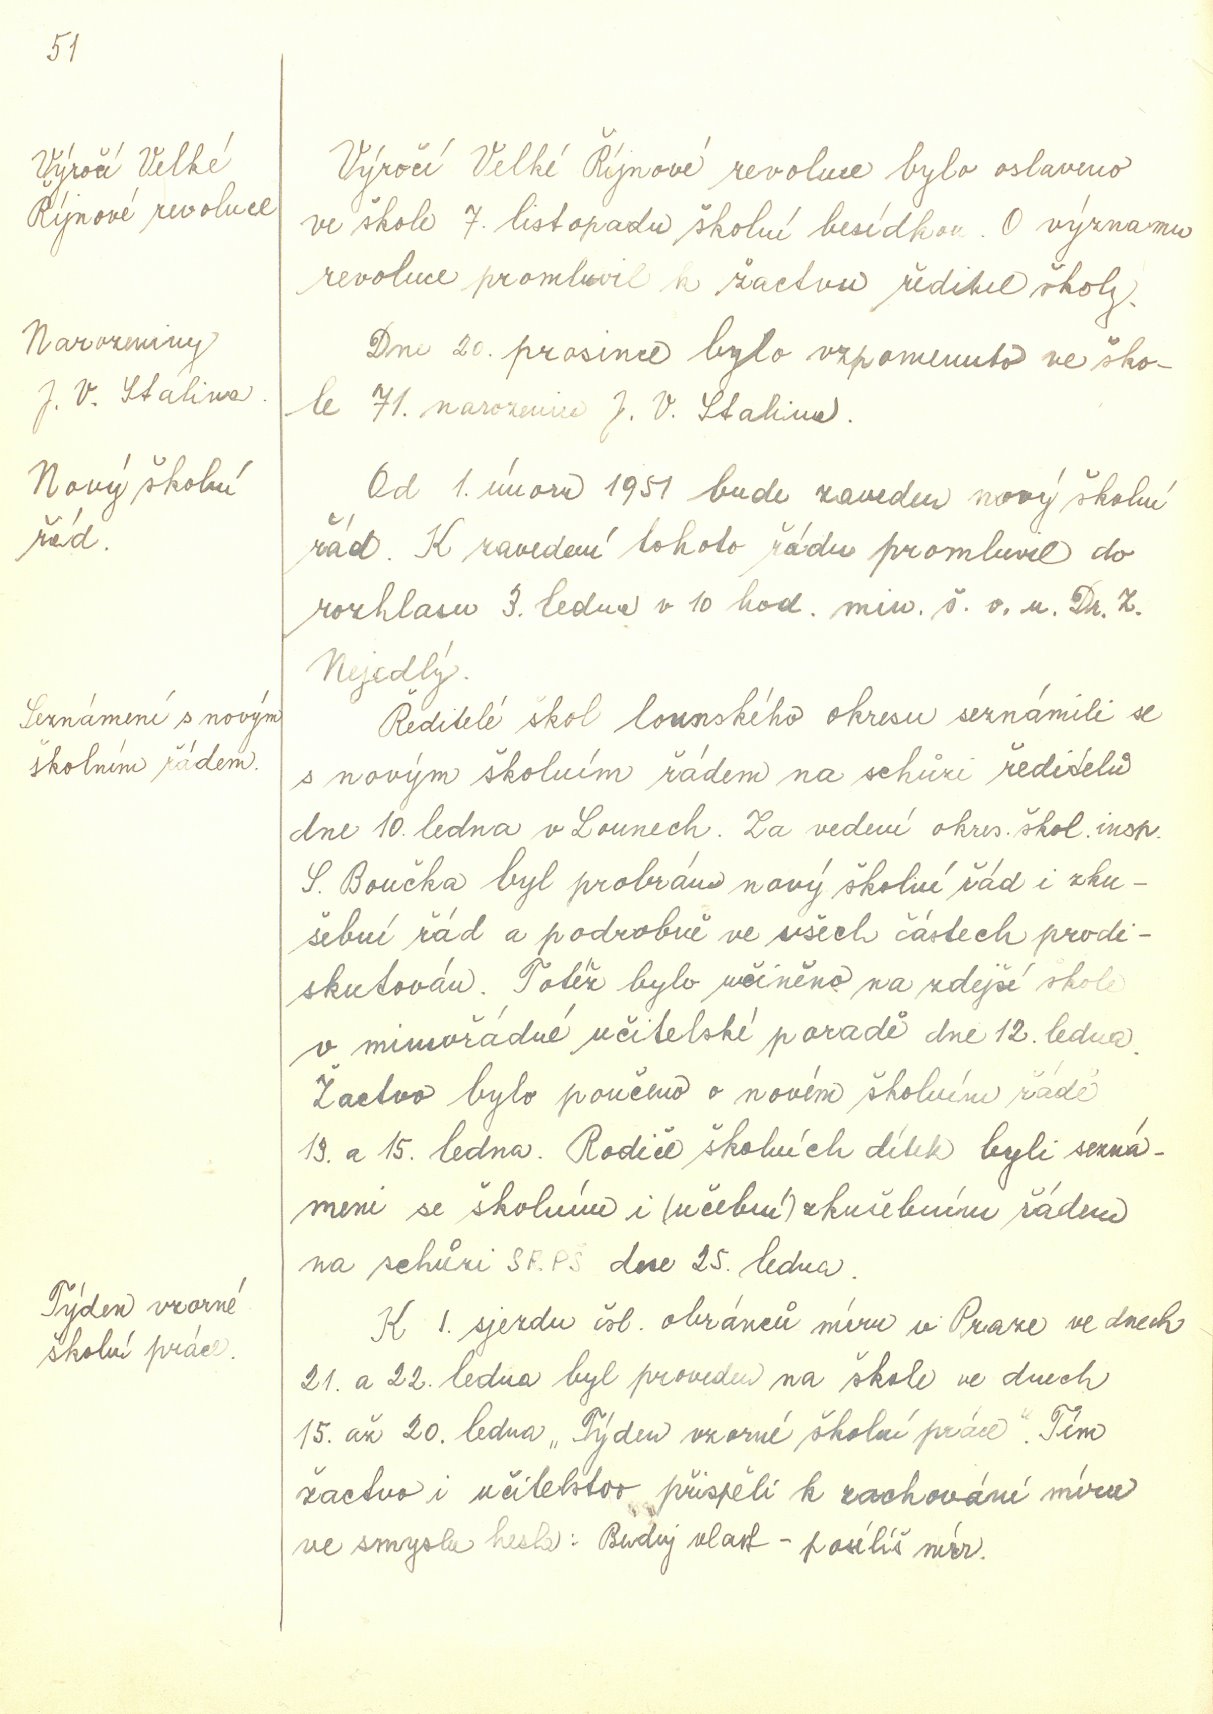 51
Výročí Velké
Říjnové revoluce
Výročí Velké Říjnové revoluce bylo oslaveno
ve škole 7. listopadu školní besídkou. O významu
revoluce promluvil k žactvu ředitel školy.
Narozeniny
J. V. Stalina.
Dne 20. prosince bylo vzpomenuto ve ško-
le 71. narozenin J. V. Stalina.
Nový školní
řád.
Od 1. února 1951 bude zaveden nový školní
řád. K zavedení tohoto řádu promluvil do
rozhlasu 3. ledna v 10 hod. min. š. v. u. Dr. Z.
Nejedlý.
Seznámení s novým
školním řádem.
Ředitelé škol lounského okresu seznámili se
s novým školním řádem na schůzi ředitelů
dne 10. ledna v Lounech. Za vedení okres. škol. insp.
S. Boučka byl probrán nový školní řád i zku-
šební řád a podrobně ve všech částech prodi-
skutován. Totéž bylo učiněno na zdejší škole
v mimořádné učitelské poradě dne 12. ledna.
Žactvo bylo poučeno o novém školním řádě
13. a 15. ledna. Rodiče školních dítek byli sezná-
meni se školním i (učební) zkušebním řádem
na schůzi SRPŠ dne 25. ledna.
Týden vzorné
školní práce.
K 1. sjezdu čsl. obránců míru v Praze ve dnech
21. a 22. ledna byl proveden na škole ve dnech
15. až 20. ledna „Týden vzorné školní práce“. Tím
žactvo i učitelstvo přispěli k zachování míru
ve smyslu hesla: Buduj vlast – posílíš mír.